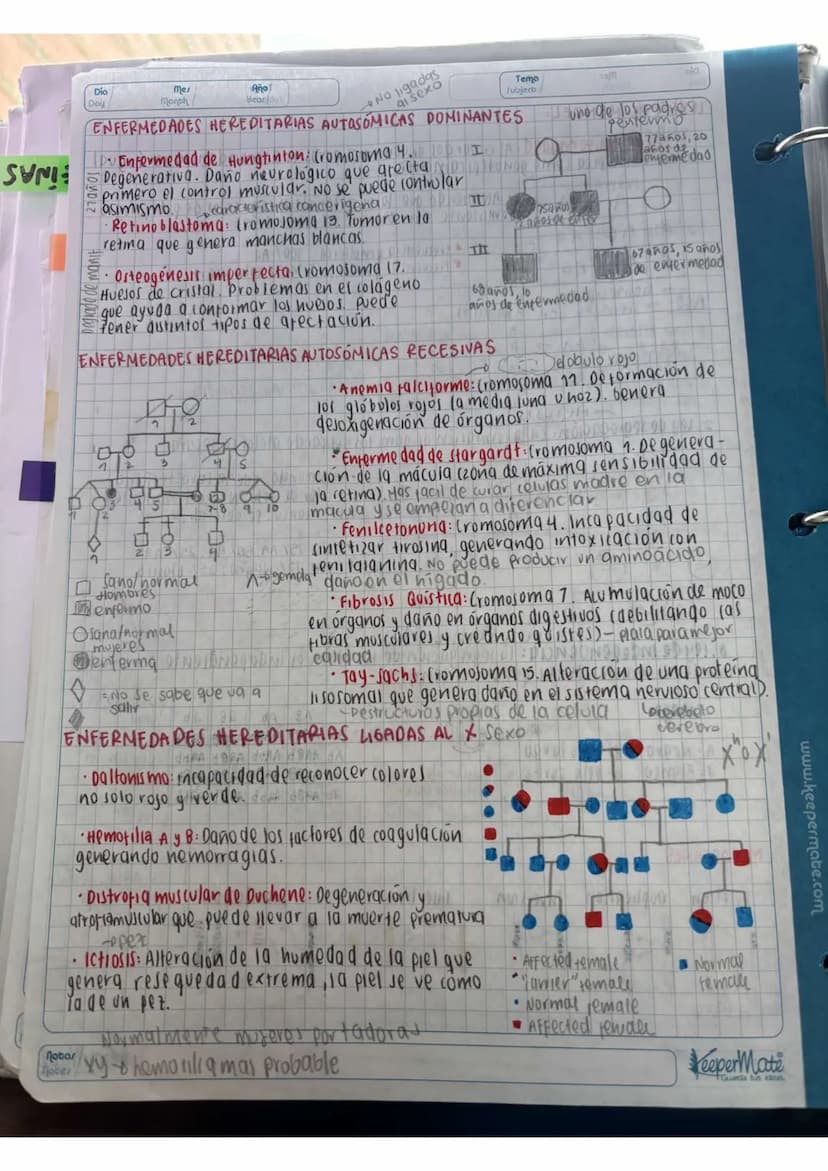 Día
Day
Mes
Month
Año
Year
→ No ligadas
al sexo
Tema
Subject
ENFERMEDADES HEREDITARIAS AUTOSÓMICAS DOMINANTES
uno de los padres
enfermo
· Enfermedad de Hungtinton: Cromosoma 4.
Degenerativa. Daño neurológico que afecta
primero el control muscular. No se puede controlar
asimismo
27 años
característica cancerígena
· Retinoblastoma: Cromosoma 13. Tumor en la
retina que genera manchas blancas.
· Osteogénesis imperfecta: Cromosoma 17.
Huesos de cristal. Problemas en el colágeno
que ayuda a conformar los huesos. Puede
tener distintos tipos de afectación.
I
77 años, 20
años de
enfermedad
II
75 años
III
67 años, 15 años
de enfermedad
68 años, 10
años de enfermedad
ENFERMEDADES HEREDITARIAS AUTOSÓMICAS RECESIVAS
glóbulo rojo
· Anemia falciforme: Cromosoma 11. Deformación de
los glóbulos rojos (a media luna u hoz). Genera
desoxigenación de órganos.
· Enfermedad de Stargardt: Cromosoma 1. Degenera-
ción de la mácula (zona de máxima sensibilidad de
la retina). Mas facil de curar, celulas madre en la
macula y se empieran a diferenciar
· Fenilcetonuria: Cromosoma 4. Incapacidad de
sintetizar tirosina, generando intoxicación con
fenilalanina. No puede producir un aminoácido,
daño en el hígado.
· Fibrosis Quística: Cromosoma 7. Acumulación de moco
en órganos y daño en órganos digestivos (debilitando las
fibras musculares y creando quistes)
para mejor
calidad
· Tay-Sachs: Cromosoma 15. Alteración de una proteína
lisosomal que genera daño en el sistema nervioso central).
Destructuras propias de la celula
cerebro
1 2
1 2 3 4 5
1 2 3 4 5 7-8 9 10
1 2 3 4
Sano/normal
Hombres
enfermo
Λ→ gemela
Sana/normal
mujeres
enferma
= No se sabe que va a
salir
ENFERMEDADES HEREDITARIAS LIGADAS AL X Sexo
· Daltonismo: incapacidad de reconocer colores
no solo rojo y verde.
· Hemofilia A y B: Daño de los factores de coagulación
generando hemorragias.
· Distrofia muscular de Duchene: Degeneración y
atrofia muscular que puede llevar a la muerte prematura
→ pez
· Ictiosis: Alteración de la humedad de la piel que
genera resequedad extrema, la piel se ve como
la de un pez.
· Affected female
· "Carrier" female
· Normal female
· Affected female
Normal
female
Normalmente mujeres portadoras
Notas
Notes
xy → hemofilia mas probable
KeeperMate
www.keepermate.com